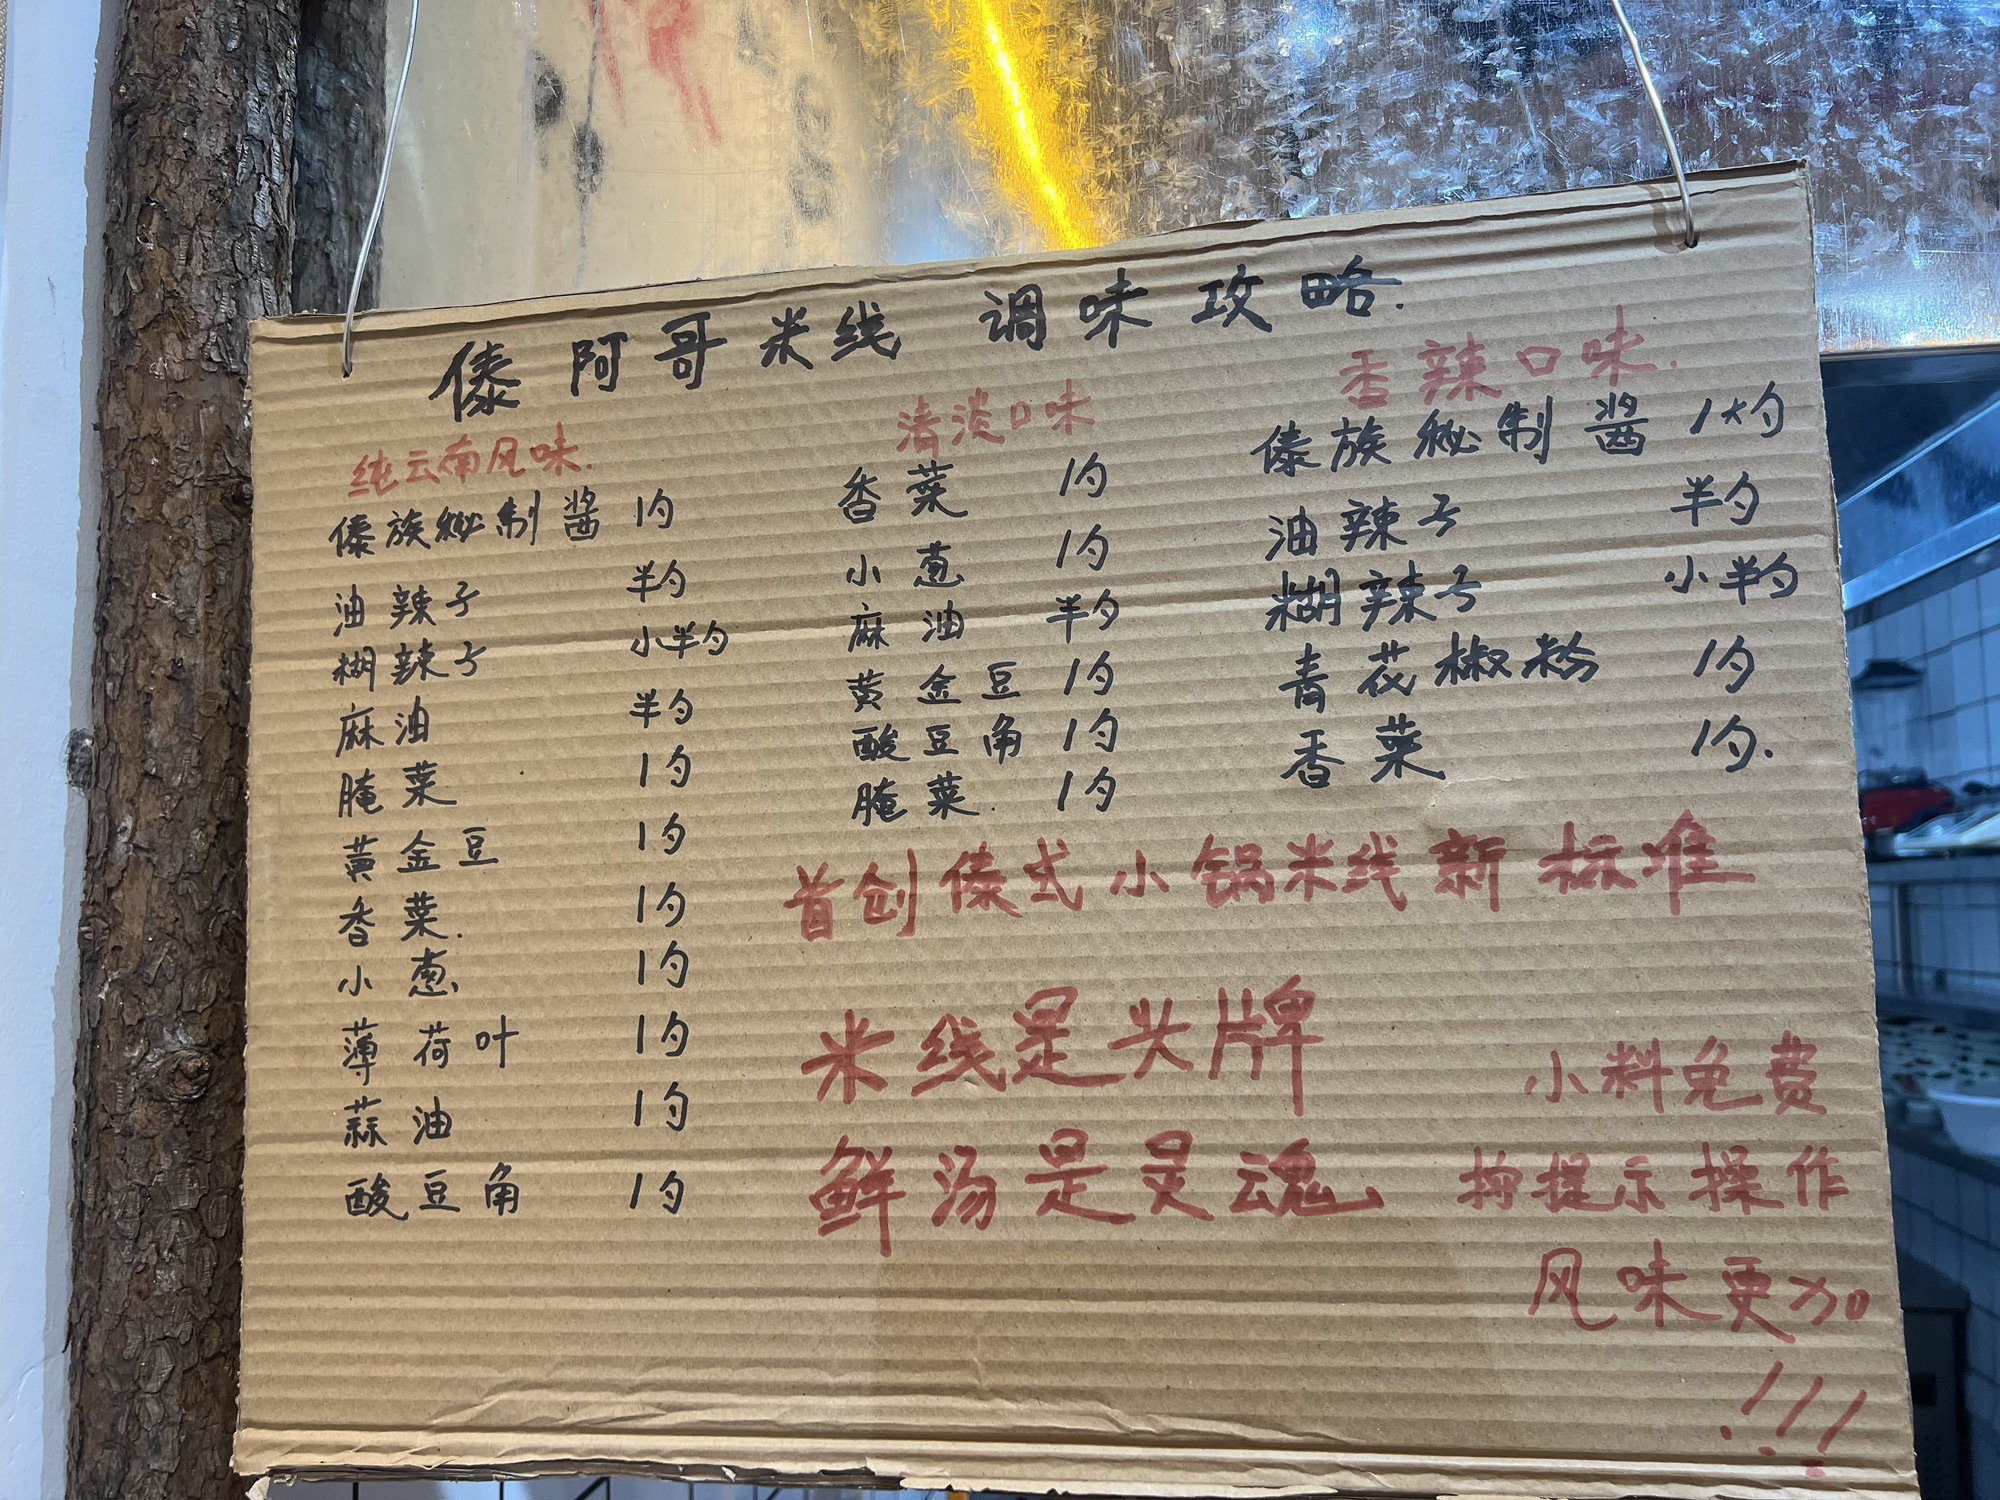 傣阿哥米线 调味攻略.
纯云南风味.
傣族秘制酱 1勺
油辣子 半勺
糊辣子 小半勺
麻油 半勺
腌菜 1勺
黄金豆 1勺
香菜. 1勺
小葱 1勺
薄荷叶 1勺
蒜油 1勺
酸豆角 1勺
清淡口味
香菜 1勺
小葱 1勺
麻油 半勺
黄金豆 1勺
酸豆角 1勺
腌菜. 1勺
香辣口味.
傣族秘制酱 1大勺
油辣子 半勺
糊辣子 小半勺
青花椒粉 1勺
香菜 1勺.
首创傣式小锅米线新标准
米线是头牌
鲜汤是灵魂
小料免费
按提示操作
风味更加
!!!